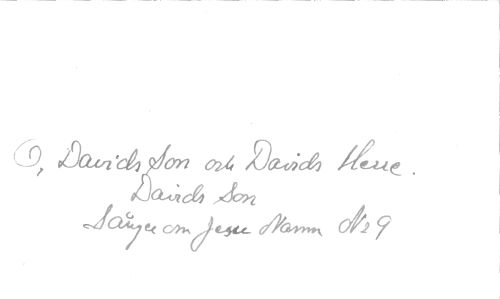 O, Davids Son och Davids Herre.
Davids Son
Sånger om Jesu Namn Nr 9